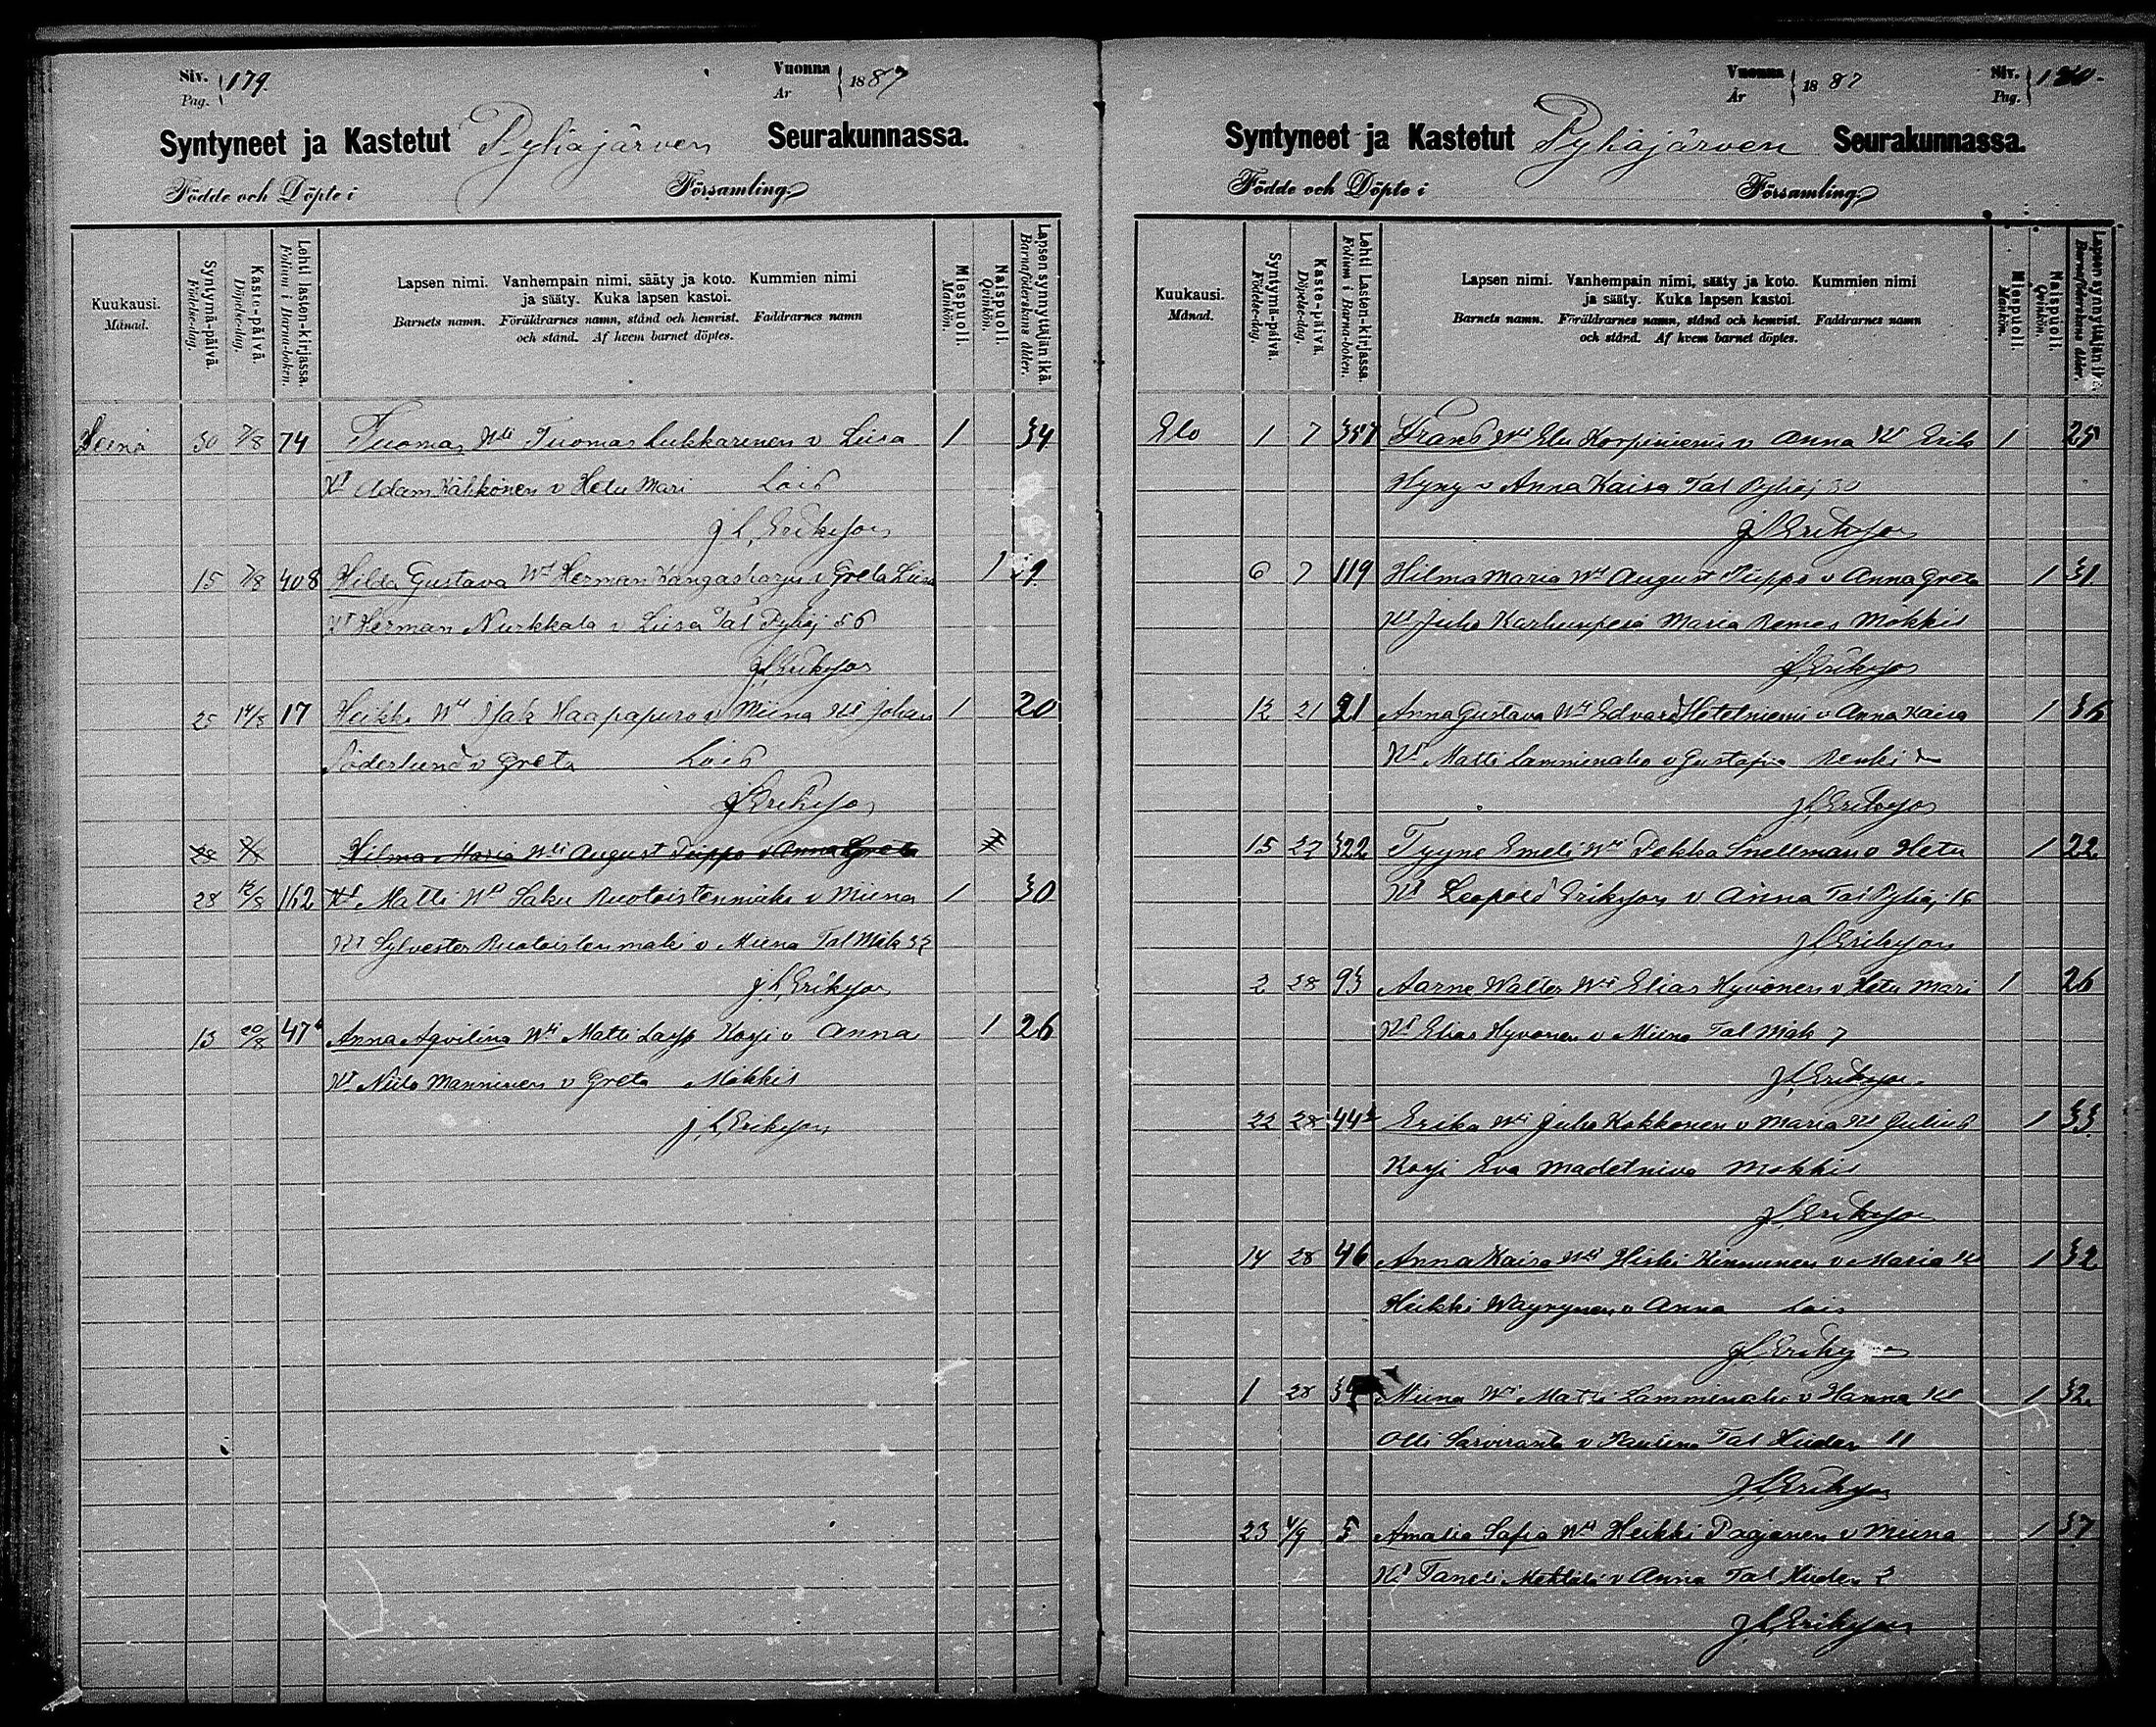 Siv. Pag. 179.
Vuonna År 1887
Syntyneet ja Kastetut Pyhäjärven Seurakunnassa.
Födde och Döpte i Församling
Kuukausi. Månad.
Syntymä-päivä. Födelse-dag.
Kaste-päivä. Döpelse-dag.
Lehti lasten-kirjassa. Folium i Barna-boken.
Lapsen nimi. Vanhempain nimi, sääty ja koto. Kummien nimi
ja sääty. Kuka lapsen kastoi.
Barnets namn. Föräldrarnes namn, stånd och hemvist. Faddrarnes namn
och stånd. Af hvem barnet döptes.
Miespuoli. Mankön.
Naispuoli. Qvinkön.
Lapsensynnyttäjän ikä. Barnaföderskans ålder.
Heinä 30 7/8 74 Tuomas Wti Tuomas Lukkarinen v Liisa 1 34
Kt Adam Kähkönen v Helu Mari Lois
J L Erikson
15 7/8 408 Hilda Gustava Wt Herman Kangasharju v Greta Liisa 1
Kt Herman Nurkkala v Liisa Tal Pyhäj 56
J L Erikson
25 14/8 17 Heikki Wt Isak Haapapuro v Miina Kt Johan 1 20
Söderlund v Greta Lois
J L Erikson
28 Hilma Maria Wti August Piippo v Anna Greta
28 162 Kt Matti Wt Saku Ruotoistenmäki v Miina 1 30
Kt Sylvester Ruotoistenmäki v Miina Tal Mäk 32
J L Erikson
13 20/8 47 Anna Aqvilina Wti Matti Lasse Korpi v Anna 1 26
Kt Niilo Manninen v Greta Mökkis
J L Erikson
Vuonna År 1887
Siv. Pag. 180
Syntyneet ja Kastetut Pyhäjärven Seurakunnassa.
Födde och Döpte i Församling
Kuukausi. Månad.
Syntymä-päivä. Födelse-dag.
Kaste-päivä. Döpelse-dag.
Lehti Lasten-kirjassa. Folium i Barna-boken.
Lapsen nimi. Vanhempain nimi, sääty ja koto. Kummien nimi
ja sääty. Kuka lapsen kastoi.
Barnets namn. Föräldrarnes namn, stånd och hemvist. Faddrarnes namn
och stånd. Af hvem barnet döptes.
Miespuoli. Mankön.
Naispuoli. Qvinkön.
Lapsensynnyttäjän ikä. Barnaföderskans ålder.
Elo 1 7 357 Frans Wti Elu Korpiniemi v Anna Kt Erik 1 25
Hyny v Anna Kaisa Tal Pyhäj 30
J L Erikson
6 7 119 Hilma Maria Wt August Piippo v Anna Greta 1 31
Kt Juho Karhunpesä Maria Remes Mökkis
J L Erikson
12 21 21 Anna Gustava Wt Edvard Hetelniemi v Anna Kaisa 1 36
Kt Matti Lamminaho v Gustafva Renki
J L Erikson
15 27 322 Tyyne Emeli Wti Pekka Snellman v Hetu 1 22
Kt Leopold Erikson v Anna Tal Pyhäj 16
J L Erikson
2 28 93 Aarne Walter Wti Elias Hyvönen v Hetu Mari 1 26
Kt Elias Hyvonen v Miina Tal Mäk 7
J L Erikson
22 28 442 Erika Wti Juho Kokkonen v Maria Kt Julius 1 33
Korpi Eva Madetniva Mökkis
J L Erikson
14 28 46 Anna Kaisa Wti Heiki Kinnunen v Maria Kt 1 32
Heikki Wäyrynen v Anna Lois
J L Erikson
1 28 Miina Wt Matti Lamminaho v Hanna Kt 1 32
Olli Sarviranta v Paulina Tal Hiiden 11
J L Erikson
23 4/9 5 Amalia Sofia Wt Heikki Pajanen v Miina 1 37
Kt Taneli Mehtälä v Anna Tal Hiiden 2
J L Erikson